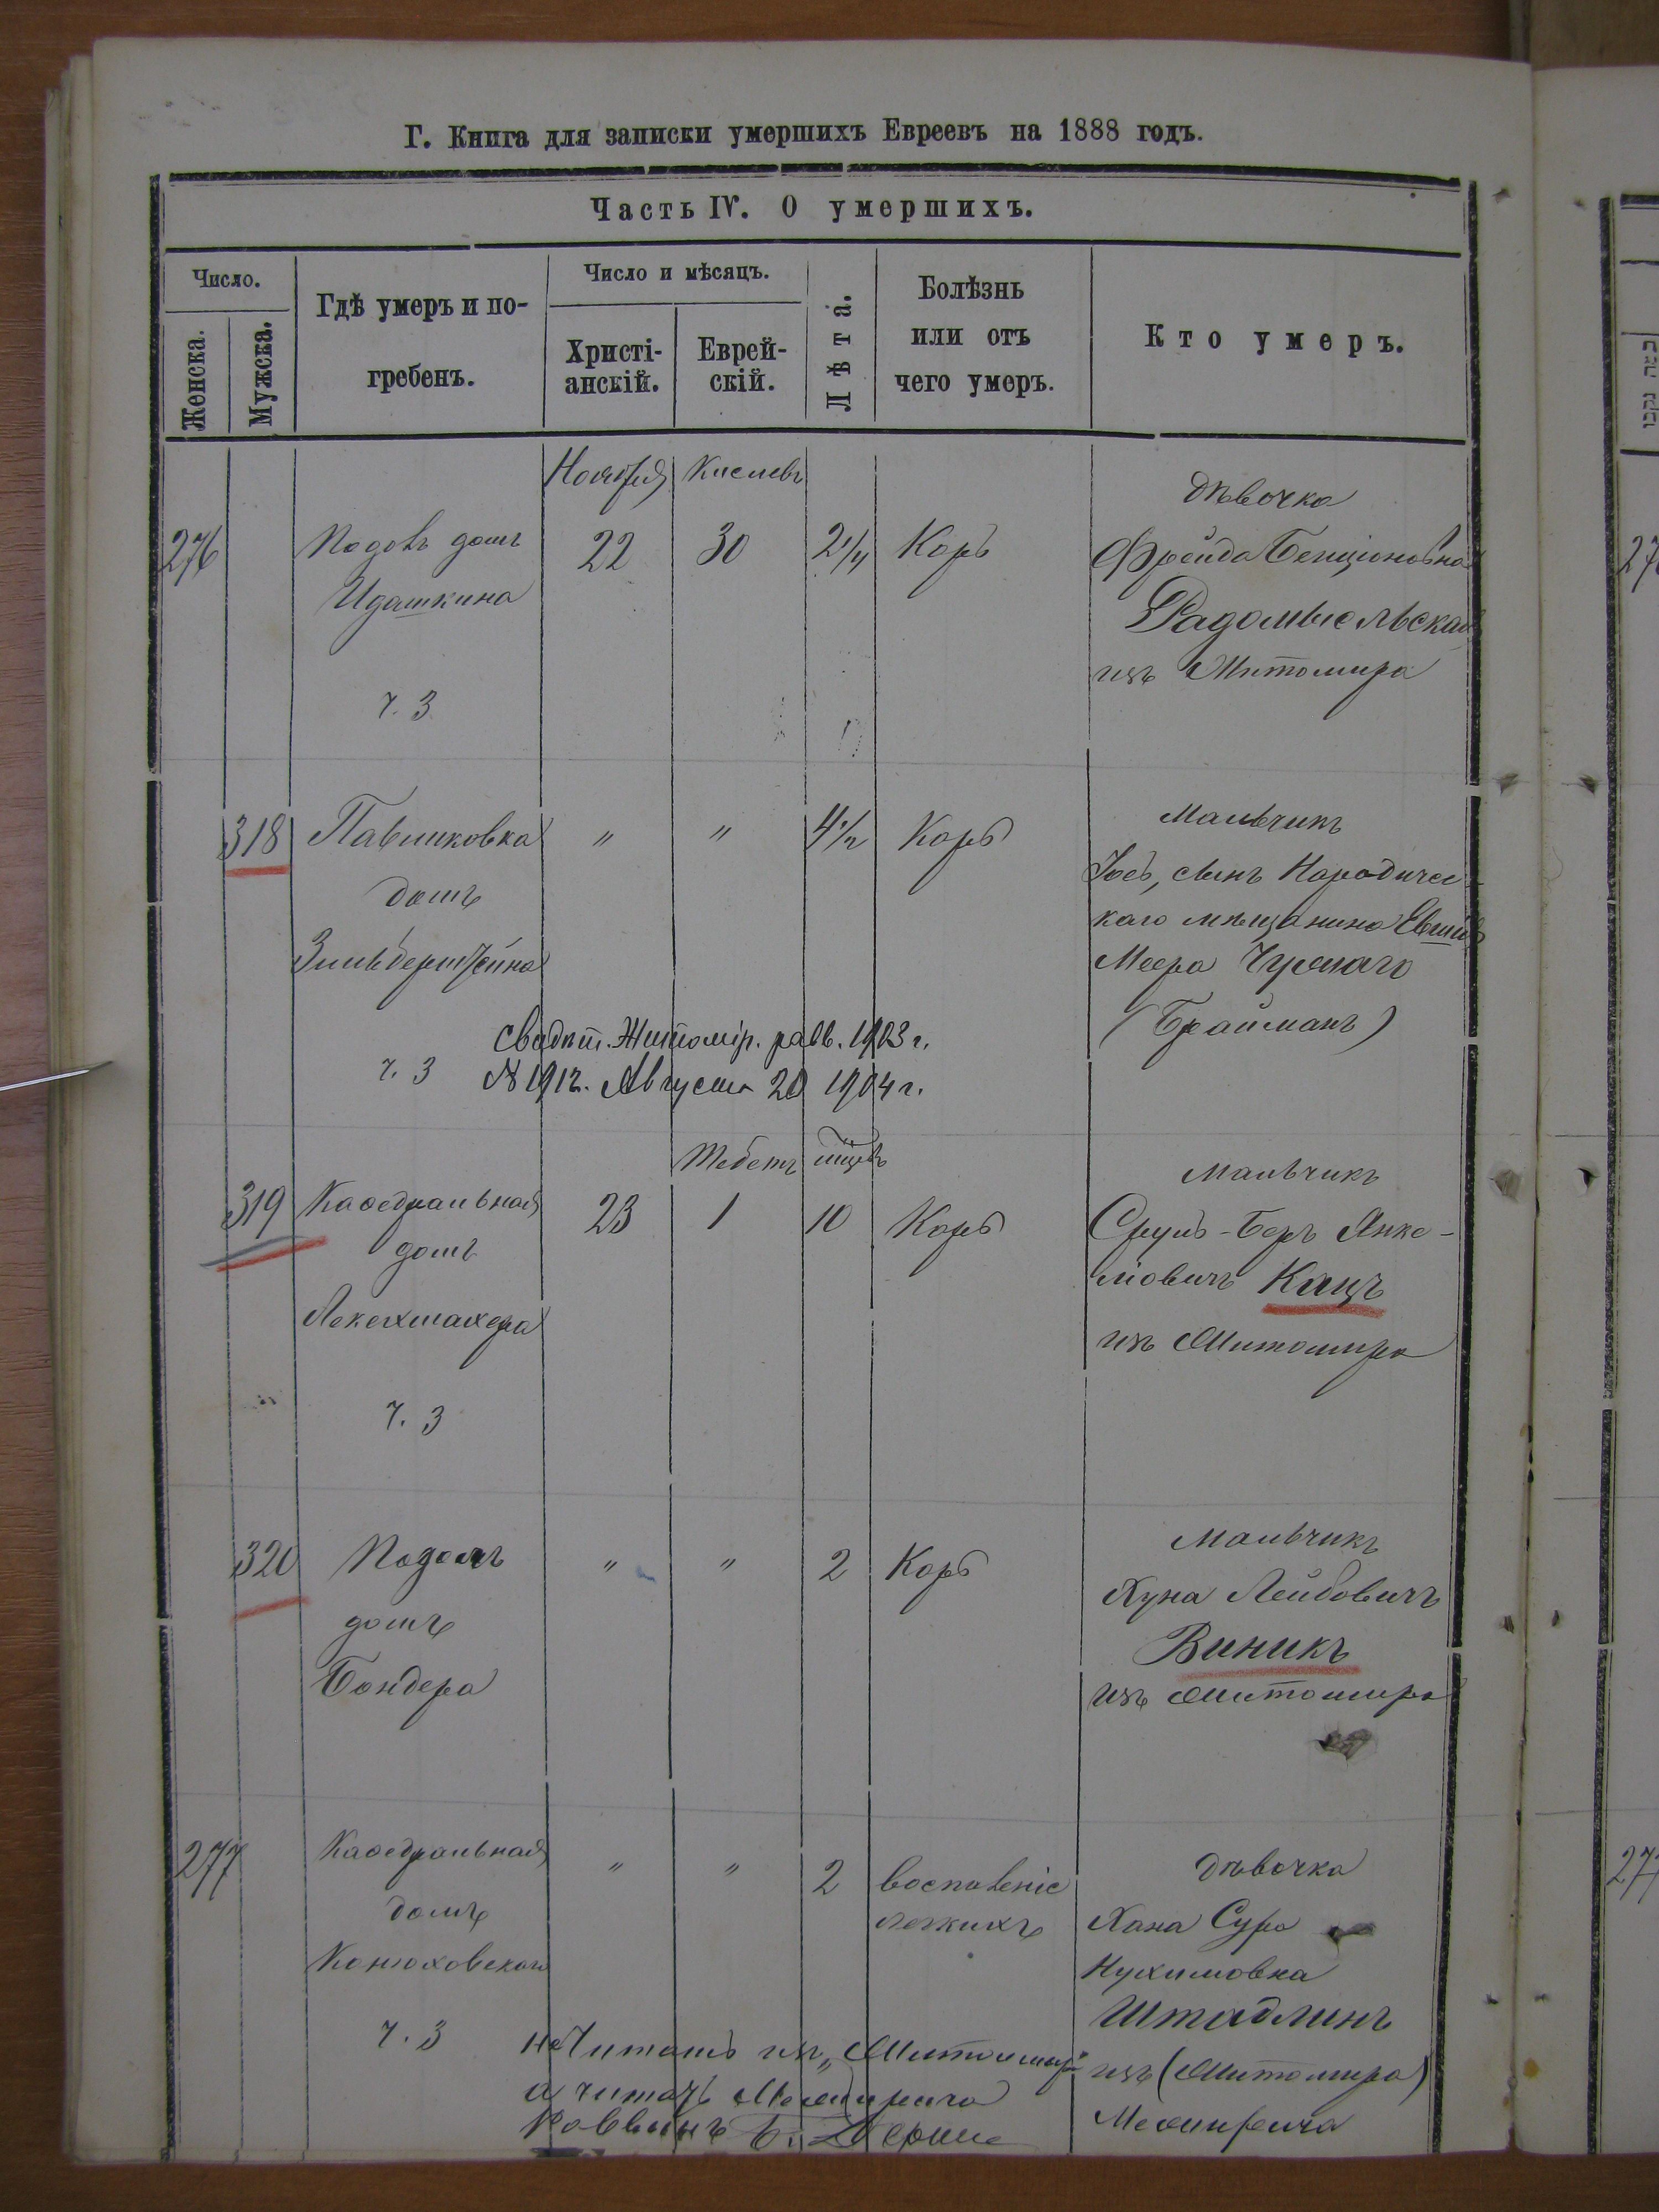 Г. Книга для записки умершихъ Евреевъ на 1888 годъ.
Часть IV. О умершихъ.
Число.
Женска.
Мужска.
Гдѣ умеръ и по-
гребенъ.
Число и мѣсяцъ.
Христі-
анскій.
Еврей-
скій.
Лѣта.
Болѣзнь
или отъ
чего умеръ.
Кто умеръ.
Ноября Кислевъ
дѣвочка
276 Подолъ домъ 22 30 2 1/4 Корь Фрейда Бенціоновна
Идашкина Радомысльская
изъ Житомира
ч. 3
Мальчикъ
318 Павликовка " " 4 1/2 Корь
сынъ Народичес-
домъ каго мѣщанина
Зильберштейна Меера
(Брайман)
ч. 3
Свидѣт. Житомір. равв. 1903 г.
№ 1912. Августа 20 1904 г.
Тебетъ
Мальчикъ
319 Каѳедральная 23 1 10 Корь Сруль-Беръ Янке-
домъ
левичъ Кацъ
Лекехмахера изъ Житомира
ч. 3
Мальчикъ
320 Подолъ " " 2 Корь Хуна Лейбовичъ
домъ Виникъ
Бондера изъ Житомира
дѣвочка
277 Каѳедральная " " 2 воспаленіе
домъ легкихъ Хана Сура
Конюховскаго Нухимовна
Штадлинъ
ч. 3
не Читать изъ „Житомира" изъ (Житомира)
а читать Межирича Межирича
Раввинъ
27
277